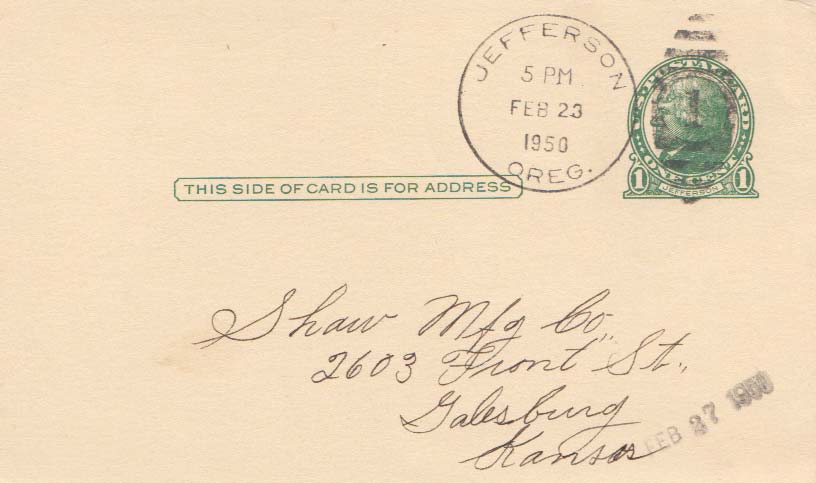 JEFFERSON
5 PM
FEB 23
1950
OREG.
U.S. POSTAL CARD
1
ONE CENT
1 JEFFERSON 1
THIS SIDE OF CARD IS FOR ADDRESS
Shaw Mfg Co,
2603 Front St.,
Galesburg
Kansas
FEB 27 1950